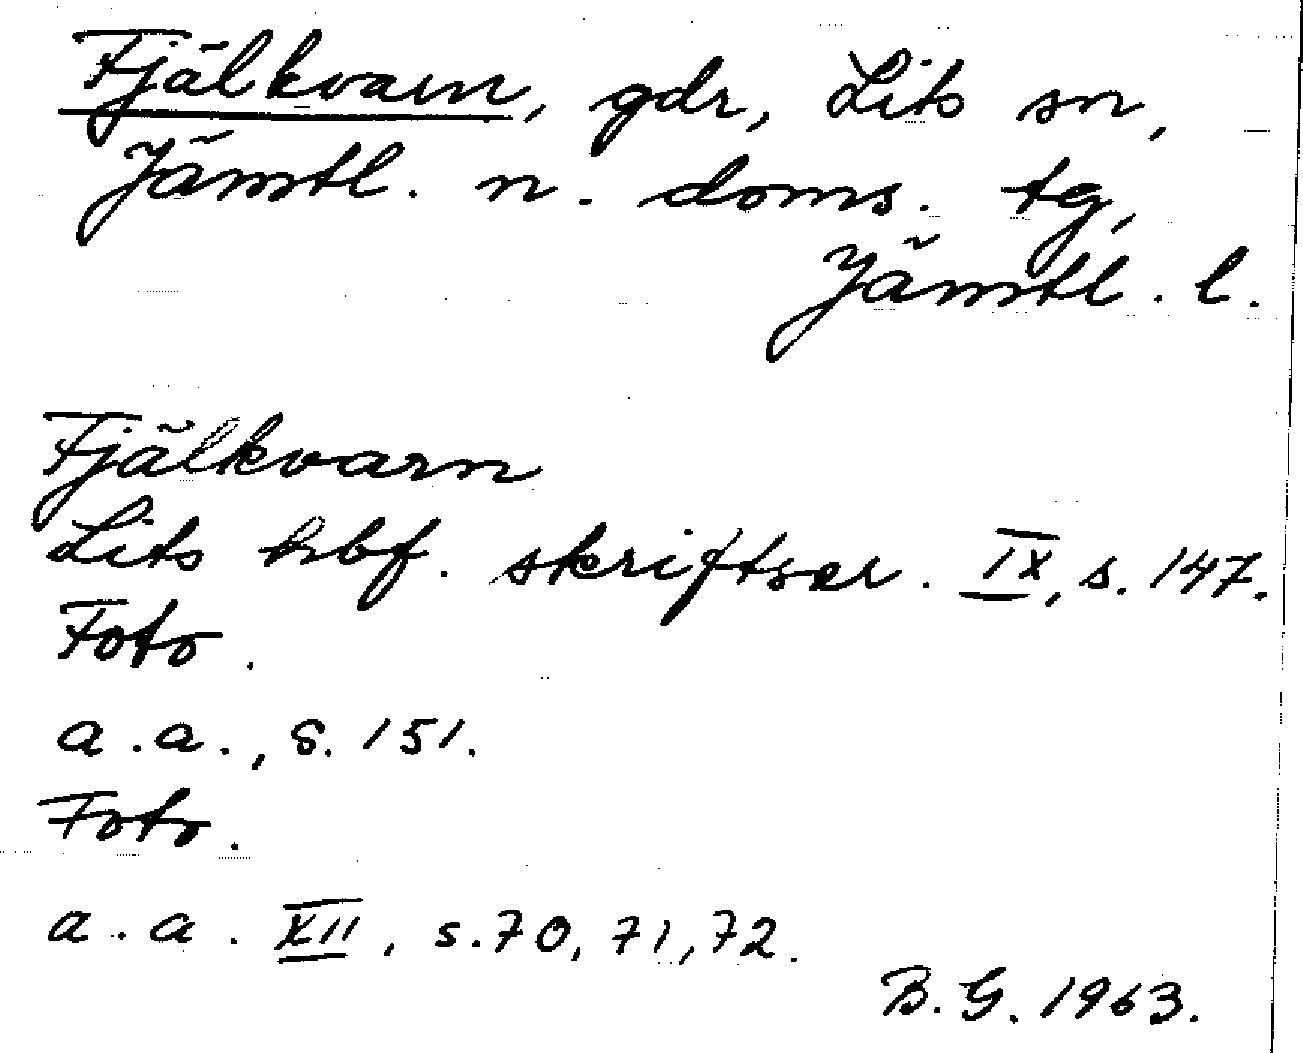 Fjälkvarn, gdr, Lits sn,
Jämtl. n. doms. tg,
Jämtl. l.
Fjälkvarn
Lits hbf. skriftser. IX, s. 147.
Foto.
a.a., s. 151.
Foto.
a.a. XII, s. 70, 71, 72.
B.G. 1963.